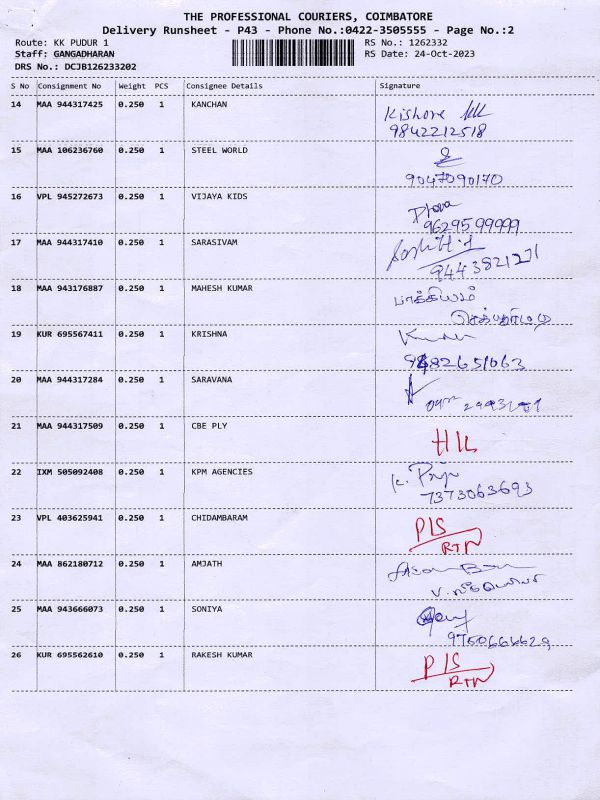 THE PROFESSIONAL COURIERS, COIMBATORE
Delivery Runsheet - P43 - Phone No.:0422-3505555 - Page No.:2
Route: KK PUDUR 1 RS No.: 1262332
Staff: GANGADHARAN RS Date: 24-Oct-2023
DRS No.: DCJB126233202
S No Consignment No Weight PCS Consignee Details Signature
14 MAA 944317425 0.250 1 KANCHAN Kishore
9842212518
15 MAA 106236760 0.250 1 STEEL WORLD
9047090170
16 VPL 945272673 0.250 1 VIJAYA KIDS
9629599999
17 MAA 944317410 0.250 1 SARASIVAM
9443821271
18 MAA 943176887 0.250 1 MAHESH KUMAR பாக்கியம்
19 KUR 695567411 0.250 1 KRISHNA
20 MAA 944317284 0.250 1 SARAVANA
21 MAA 944317509 0.250 1 CBE PLY
22 IXM 505092408 0.250 1 KPM AGENCIES K.
7373063693
23 VPL 403625941 0.250 1 CHIDAMBARAM P/S
RTN
24 MAA 862180712 0.250 1 AMJATH
25 MAA 943666073 0.250 1 SONIYA
9750666629
26 KUR 695562610 0.250 1 RAKESH KUMAR P/S
RTN